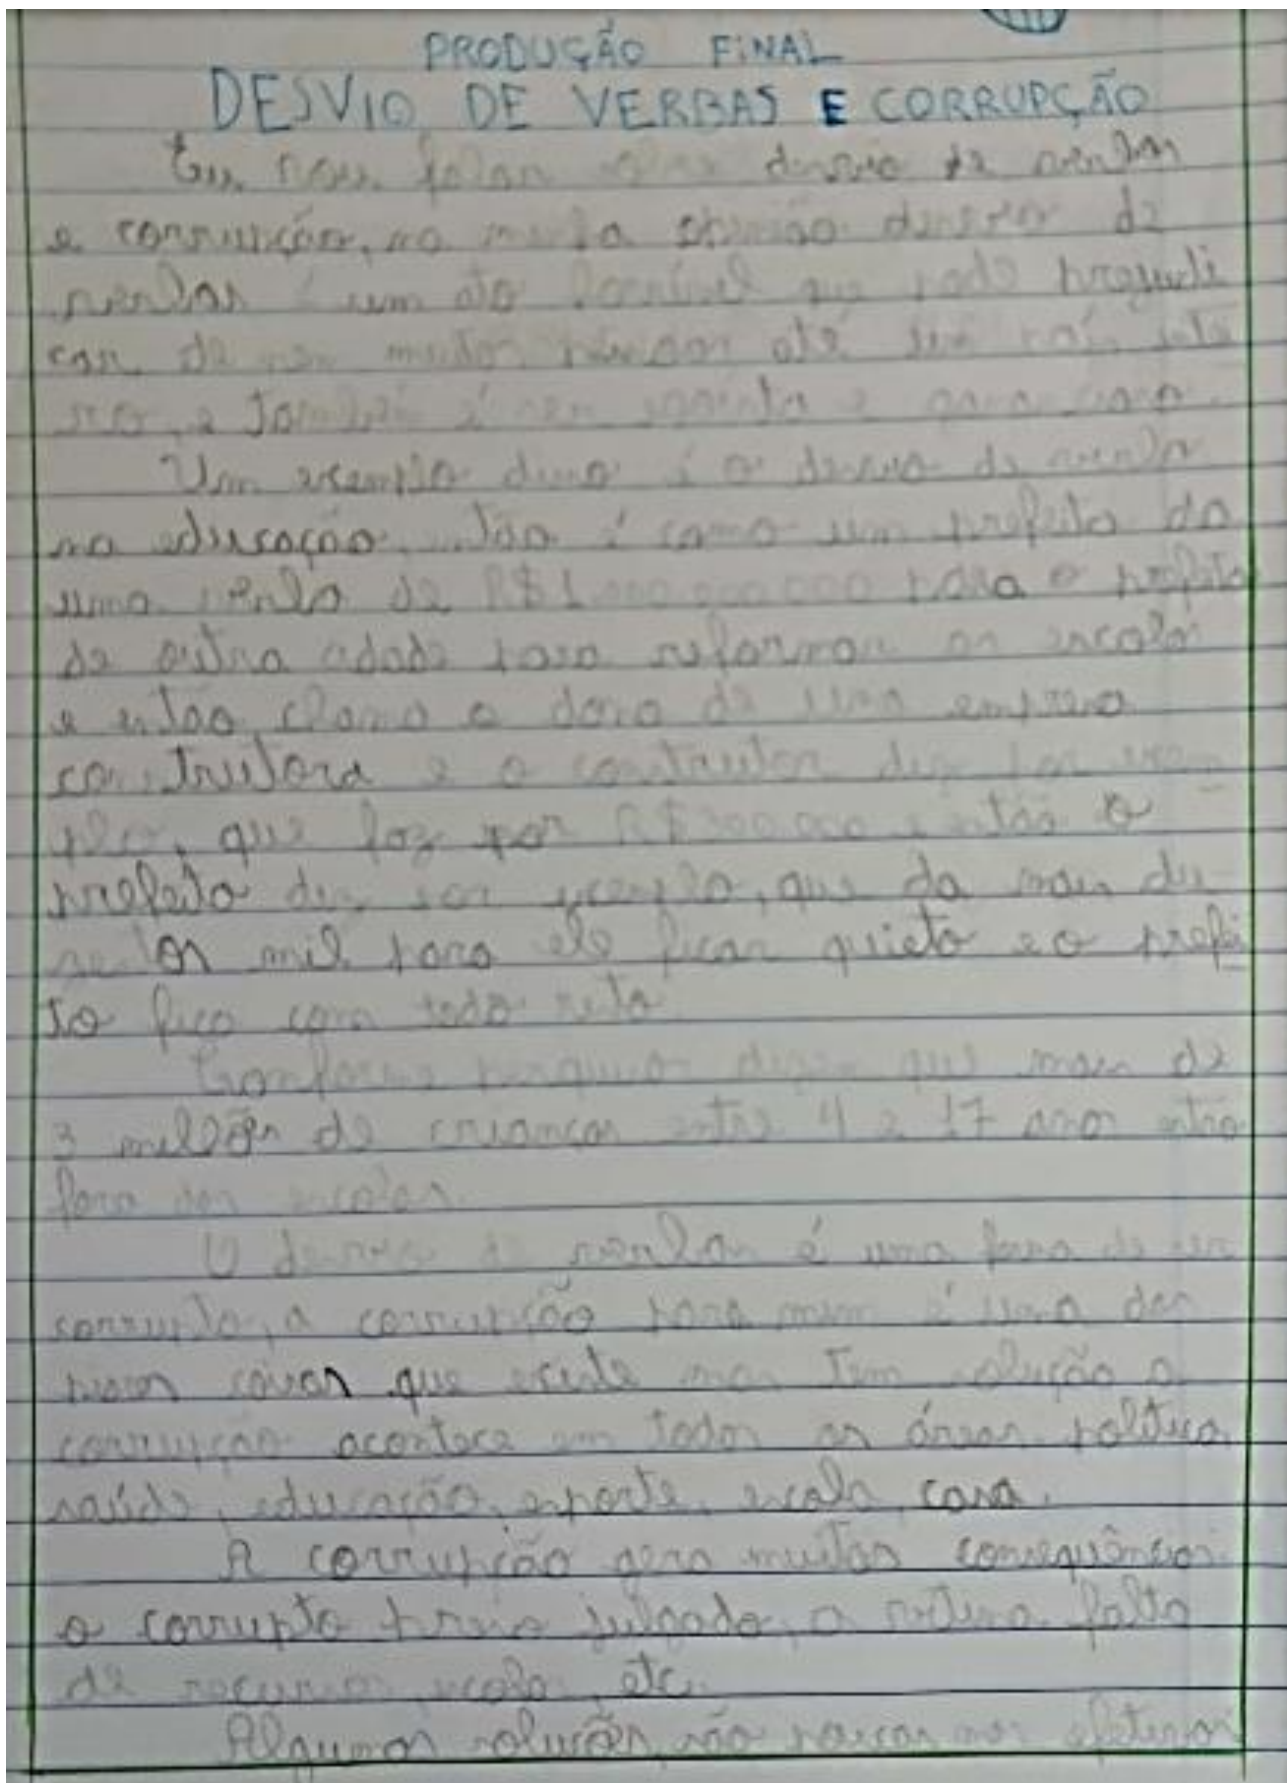 PRODUÇÃO FINAL
DESVIO DE VERBAS E CORRUPÇÃO
Eu vou falar sobre desvio de verbas
e corrupção, na minha opinião desvio de
verbas é um ato horrível que pode prejudi
car de muitas pessoas até um
e também é ser e
Um exemplo disso é o desvio de verba
na educação, então é como um prefeito da
uma verba de R$1 000 000 000 para o prefeito
de outra cidade para reformar as escolas
e então chama o dono de uma empresa
construtora e o construtor diz por exem
plo, que faz por e então o
prefeito diz por exemplo, que da mais du
zentos mil para ele ficar quieto e o prefei
to fica com todo resto
Conforme pesquisas dizem que mais de
3 milhões de crianças entre 4 e 17 anos estão
fora das escolas.
O desvio de verbas é uma forma de ser
corrupto, a corrupção para mim é uma das
piores coisas que existe mas tem solução a
corrupção acontece em todas as áreas política
saúde, educação, esporte, escola, casa.
A corrupção gera muitas consequências
o corrupto preso julgado, a vítima falta
de recursos, escola, etc.
Algumas soluções, não